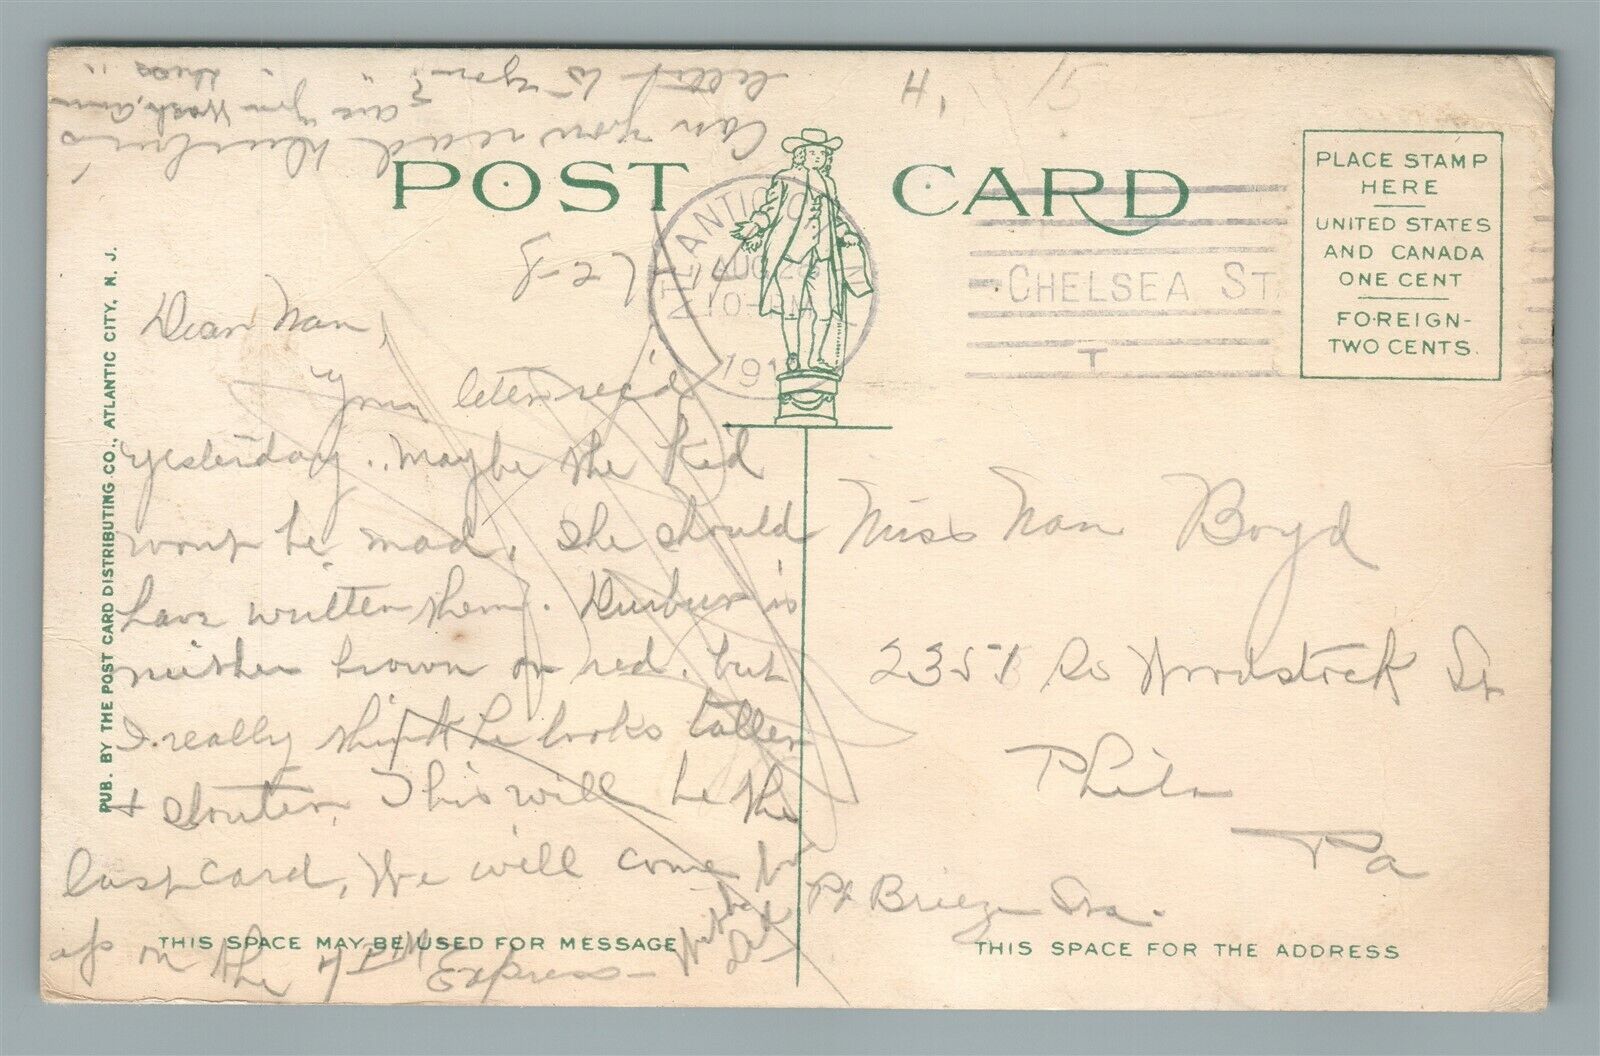 POST CARD
PLACE STAMP
HERE
UNITED STATES
AND CANADA
ONE CENT
FOREIGN-
TWO CENTS.
ATLANTIC
AUG 28
10-PM
CHELSEA ST.
PUB. BY THE POST CARD DISTRIBUTING CO., ATLANTIC CITY, N. J.
Can you read
letter to you?
Dear Nan,
Your letter rec'd
yesterday. Maybe the kid
won't be mad. She should
have written them. Durbur is
neither brown or red. but
I really think he looks taller
& stouter. This will be the
last card. We will come
up on the 7
Express
THIS SPACE MAY BE USED FOR MESSAGE
Miss Nan Boyd
So Woodstock St
Phila
Pa
Pt Breeze Sta.
THIS SPACE FOR THE ADDRESS